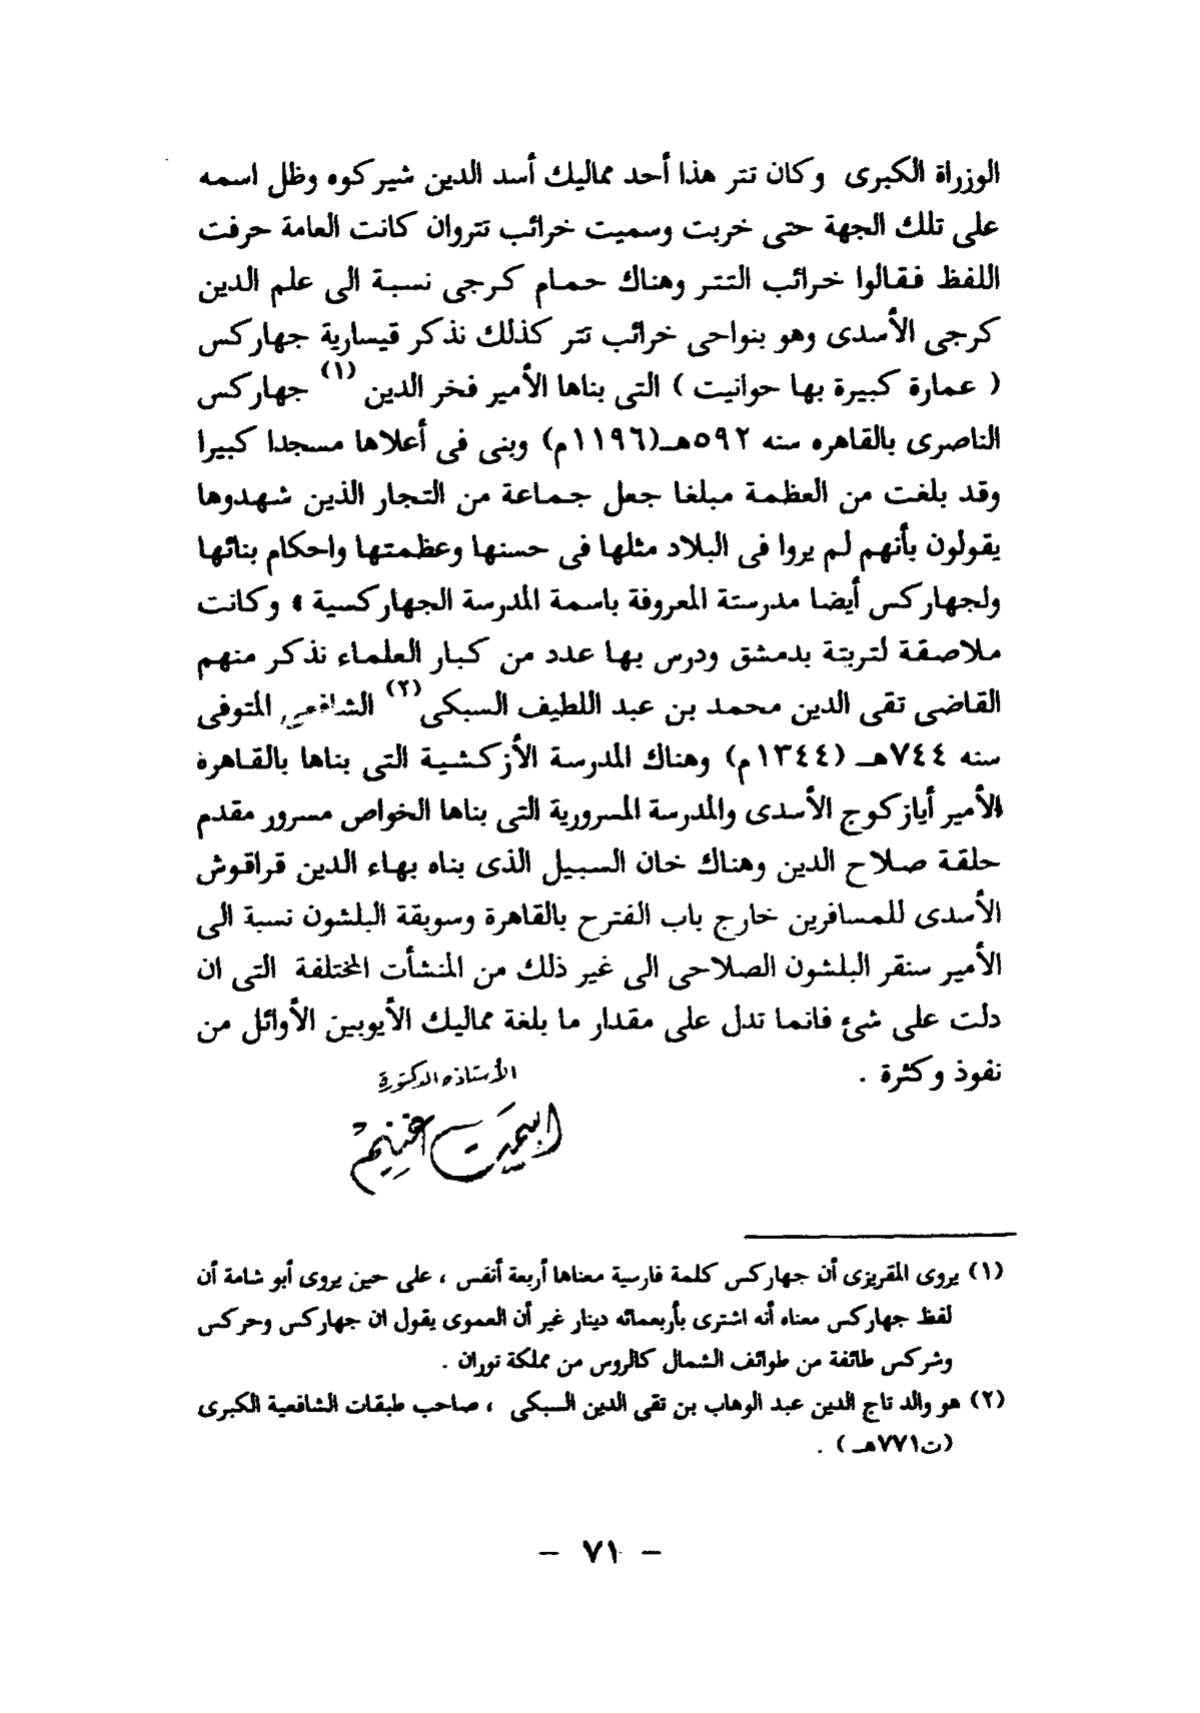 الوزراة الكبرى وكان تتر هذا أحد مماليك أسد الدين شيركوه وظل اسمه
على تلك الجهة حتى خربت وسميت خرائب تتروان كانت العامة حرفت
اللفظ فقالوا خرائب التتر وهناك حمام كرجى نسبة الى علم الدين
كرجى الأسدى وهو بنواحى خرائب تتر كذلك نذكر قيسارية جهاركس
( عمارة كبيرة بها حوانيت ) التى بناها الأمير فخر الدين (١) جهاركس
الناصرى بالقاهره سنه ٥٩٢هـ(١١٩٦م) وبنى فى أعلاها مسجدا كبيرا
وقد بلغت من العظمة مبلغا جعل جماعة من التجار الذين شهدوها
يقولون بأنهم لم يروا فى البلاد مثلها فى حسنها وعظمتها واحكام بنائها
ولجهاركس أيضا مدرستة المعروفة باسمة المدرسة الجهاركسية ، وكانت
ملاصقة لتربتة بدمشق ودرس بها عدد من كبار العلماء نذكر منهم
القاضى تقى الدين محمد بن عبد اللطيف السبكى (٢) الشافعى المتوفى
سنه ٧٤٤هـ (١٣٤٤م) وهناك المدرسة الأزكشية التى بناها بالقاهرة
الأمير أيازكوج الأسدى والمدرسة المسرورية التى بناها الخواص مسرور مقدم
حلقة صلاح الدين وهناك خان السبيل الذى بناه بهاء الدين قراقوش
الأسدى للمسافرين خارج باب الفترح بالقاهرة وسويقة البلشون نسبة الى
الأمير سنقر البلشون الصلاحى الى غير ذلك من المنشأت المختلفة التى ان
دلت على شئ فانما تدل على مقدار ما بلغة مماليك الأيوبين الأوائل من
نفوذ وكثرة .
الأستاذه الدكتورة
اسميت غنيم
(١) يروى المقريزى أن جهاركس كلمة فارسية معناها أربعة أنفس ، على حين يروى أبو شامة أن
لفظ جهاركس معناه أنه اشترى بأربعمائه دينار غير أن العموى يقول ان جهاركس وحركس
وشركس طائفة من طوائف الشمال كالروس من مملكة توران .
(٢) هو والد تاج الدين عبد الوهاب بن تقى الدين السبكى ، صاحب طبقات الشافعية الكبرى
(ت٧٧١هـ ) .
– ٧١ –